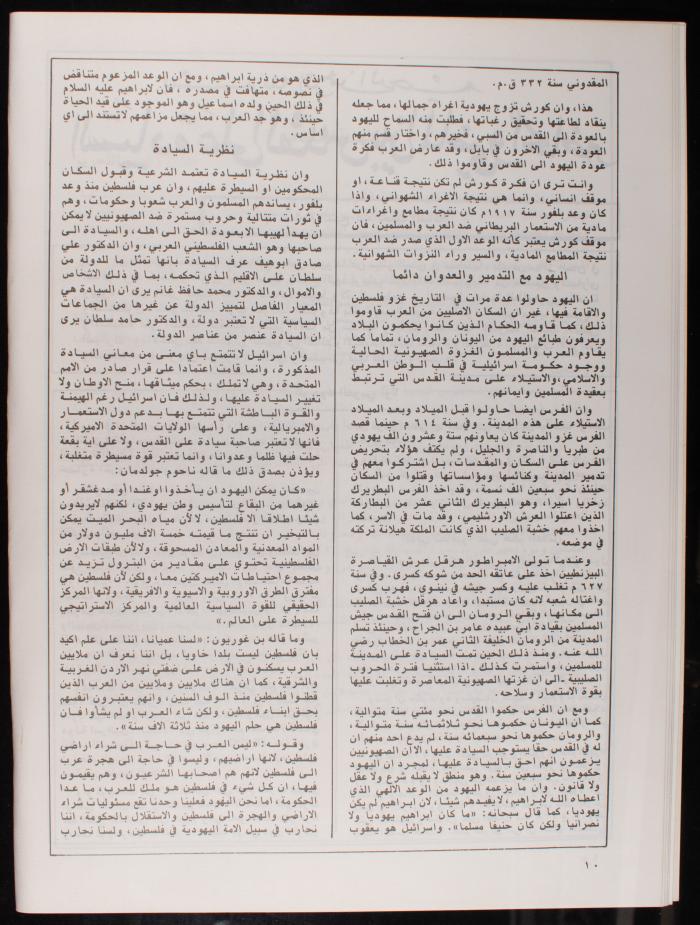 المقدوني سنة ٣٣٢ ق.م.
هذا، وان كورش تزوج يهودية اغراه جمالها، مما جعله
ينقاد لطاعتها وتحقيق رغباتها، فطلبت منه السماح لليهود
بالعودة الى القدس من السبي، فخيرهم، واختار قسم منهم
العودة، وبقي الاخرون في بابل، وقد عارض العرب فكرة
عودة اليهود الى القدس وقاوموا ذلك.
وانت ترى ان فكرة كورش لم تكن نتيجة قناعة، او
موقف انساني، وانما هي نتيجة الاغراء الشهواني، واذا
كان وعد بلفور سنة ١٩١٧م كان نتيجة مطامع واغراءات
مادية من الاستعمار البريطاني ضد العرب والمسلمين، فان
موقف كورش يعتبر كأنه الوعد الاول الذي صدر ضد العرب
نتيجة المطامع المادية، والسير وراء النزوات الشهوانية.
اليهود مع التدمير والعدوان دائما
ان اليهود حاولوا عدة مرات في التاريخ غزو فلسطين
والاقامة فيها، غير ان السكان الاصليين من العرب قاوموا
ذلك، كما قاومه الحكام الذين كانوا يحكمون البلاد
ويعرفون طبائع اليهود من اليونان والرومان، تماما كما
يقاوم العرب والمسلمون الغزوة الصهيونية الحالية
ووجود حكومة اسرائيلية في قلب الوطن العربي
والاسلامي، والاستيلاء على مدينة القدس التي ترتبط
بعقيدة المسلمين وايمانهم.
وان الفرس ايضا حاولوا قبل الميلاد وبعد الميلاد
الاستيلاء على هذه المدينة. وفي سنة ٦١٤ م حينما قصد
الفرس غزو المدينة كان يعاونهم ستة وعشرون الف يهودي
من طبريا والناصرة والجليل، ولم يكتف هؤلاء بتحريض
الفرس على السكان والمقدسات، بل اشتركوا معهم في
تدمير المدينة وكنائسها ومؤسساتها وقتلوا من السكان
حينئذ نحو سبعين الف نسمة، وقد اخذ الفرس البطريرك
زخريا اسيرا، وهو البطريرك الثاني عشر من البطاركة
الذين اعتلوا العرش الاورشليمي، وقد مات في الاسر، كما
اخذوا معهم خشبة الصليب الذي كانت الملكة هيلانة تركته
في موضعه.
وعندما تولى الامبراطور هرقل عرش القياصرة
البيزنطيين اخذ على عاتقه الحد من شوكه كسرى. وفي سنة
٦٢٧ م تغلب عليه وكسر جيشه في نينوى، فهرب كسرى
واغتاله شعبه لانه كان مستبدا، واعاد هرقل خشبة الصليب
الى مكانها، وبقي الرومان الى ان فتح القدس جيش
المسلمين بقيادة ابي عبيده عامر بن الجراح، وحينئذ تسلم
المدينة من الرومان الخليفة الثاني عمر بن الخطاب رضي
الله عنه. ومنذ ذلك الحين تمت السيادة على المدينة
للمسلمين، واستمرت كذلك -اذا استثنيا فترة الحروب
الصليبية- الى ان غزتها الصهيونية المعاصرة وتغلبت عليها
بقوة الاستعمار وسلاحه.
ومع ان الفرس حكموا القدس نحو مئتي سنة متوالية،
كما ان اليونان حكموها نحو ثلاثمائه سنة متوالية،
والرومان حكموها نحو سبعمائه سنة، لم يدع احد منهم ان
له في القدس حقا يستوجب السيادة عليها، الا ان الصهيونيين
يزعمون انهم احق بالسيادة عليها، لمجرد ان اليهود
حكموها نحو سبعين سنة. وهو منطق لا يقبله شرع ولا عقل
ولا قانون. وان ما يزعمه اليهود من الوعد الالهي الذي
اعطاه الله لابراهيم، لا يفيدهم شيئا، لان ابراهيم لم يكن
يهوديا، كما قال سبحانه: «ما كان ابراهيم يهوديا ولا
نصرانيا ولكن كان حنيفا مسلما». واسرائيل هو يعقوب
الذي هو من ذرية ابراهيم، ومع ان الوعد المزعوم متناقض
في نصوصه، متهافت في مصدره، فان لابراهيم عليه السلام
في ذلك الحين ولده اسماعيل وهو الموجود على قيد الحياة
حينئذ، وهو جد العرب، مما يجعل مزاعمهم لا تستند الى اي
اساس.
نظرية السيادة
وان نظرية السيادة تعتمد الشرعية وقبول السكان
المحكومين او السيطرة عليهم، وان عرب فلسطين منذ وعد
بلفور، يساندهم المسلمون والعرب شعوبا وحكومات، وهم
في ثورات متتالية وحروب مستمرة ضد الصهيونيين لا يمكن
ان يهدأ لهيبها الا بعودة الحق الى اهله، والسيادة الى
صاحبها وهو الشعب الفلسطيني العربي، وان الدكتور علي
صادق ابوهيف عرف السيادة بانها تمثل ما للدولة من
سلطان على الاقليم الذي تحكمه، بما في ذلك الاشخاص
والاموال، والدكتور محمد حافظ غانم يرى ان السيادة هي
المعيار الفاصل لتمييز الدولة عن غيرها من الجماعات
السياسية التي لا تعتبر دولة، والدكتور حامد سلطان يرى
ان السيادة عنصر من عناصر الدولة.
وان اسرائيل لا تتمتع باي معنى من معاني السيادة
المذكورة، وانما قامت اعتمادا على قرار صادر من الامم
المتحدة، وهي لا تملك، بحكم ميثاقها، منح الاوطان ولا
تغيير السيادة عليها، ولذلك فان اسرائيل رغم الهيمنة
والقوة الباطشة التي تتمتع بها بدعم دول الاستعمار
والامبريالية، وعلى رأسها الولايات المتحدة الاميركية،
فانها لا تعتبر صاحبة سيادة على القدس، ولا على اية بقعة
حلت فيها ظلما وعدوانا، وانما تعتبر قوة مسيطرة متغلبة،
ويؤذن بصدق ذلك ما قاله ناحوم جولدمان:
«كان يمكن اليهود ان يأخذوا اوغندا أو مدغشقر أو
غيرهما من البقاع لتأسيس وطن يهودي، لكنهم لا يريدون
شيئا اطلاقا الا فلسطين، لا لأن مياه البحر الميت يمكن
بالتبخير ان تنتج ما قيمته خمسة الاف مليون دولار من
المواد المعدنية والمعادن المسحوقة، ولا لأن طبقات الارض
الفلسطينية تحتوي على مقادير من البترول تزيد عن
مجموع احتياطات الاميركتين معا، ولكن لأن فلسطين هي
مفترق الطرق الاوروبية والاسيوية والافريقية، ولانها المركز
الحقيقي للقوة السياسية العالمية والمركز الاستراتيجي
للسيطرة على العالم.»
وما قاله بن غوريون: «لسنا عميانا، اننا على علم اكيد
بان فلسطين ليست بلدا خاويا، بل اننا نعرف ان ملايين
العرب يسكنون في الارض على ضفتي نهر الاردن الغربية
والشرقية، كما ان هناك ملايين وملايين من العرب الذين
قطنوا فلسطين منذ الوف السنين، وانهم يعتبرون انفسهم
بحق ابناء فلسطين، ولكن شاء العرب او لم يشأوا فان
فلسطين هي حلم اليهود منذ ثلاثة الاف سنة».
وقوله: «ليس العرب في حاجة الى شراء اراضي
فلسطين، لانها اراضيهم، وليسوا في حاجة الى هجرة عرب
الى فلسطين لانهم هم اصحابها الشرعيون، وهم يقيمون
فيها، ان كل شيء في فلسطين هو ملك للعرب، ما عدا
الحكومة، اما نحن اليهود فعلينا وحدنا تقع مسئوليات شراء
الاراضي والهجرة الى فلسطين والاستقلال بالحكومة، اننا
نحارب في سبيل الامة اليهودية في فلسطين، ولسنا نحارب
١٠